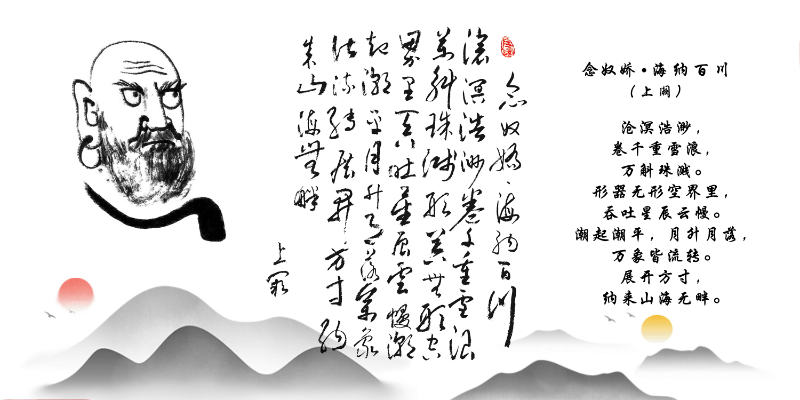 念奴娇·海纳百川
(上阕)
沧溟浩渺，
卷千重雪浪，
万斛珠溅。
形器无形空界里，
吞吐星辰云幔。
潮起潮平，月升月落，
万象皆流转。
展开方寸，
纳来山海无畔。
念奴娇·海纳百川
沧溟浩渺卷千重雪浪
万斛珠溅形器無形空
界里吞吐星辰雲幔潮
起潮平月升月落万象
皆流转展开方寸纳
来山海無畔
上阕